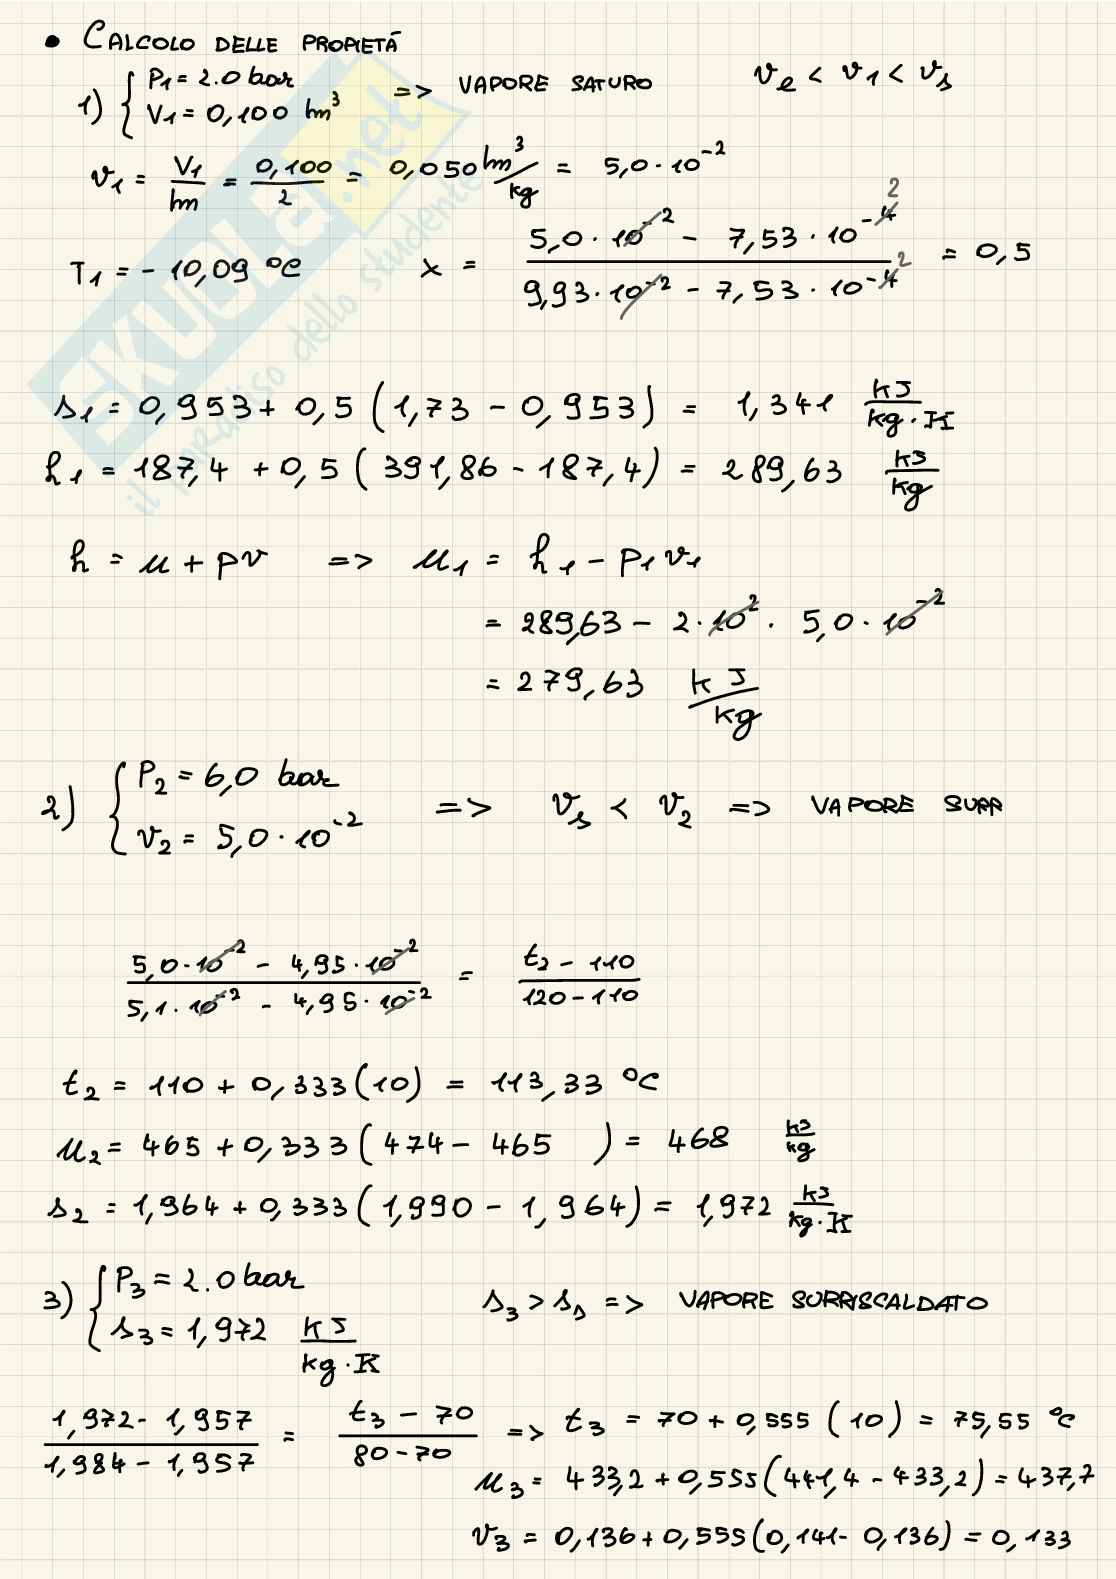 • CALCOLO DELLE PROPIETÁ
1) { P1 = 2.0 bar => VAPORE SATURO vₑ < v1 < vₛ
V1 = 0,100 m³
v1 = V1/m = 0,100/2 = 0,050 m³/kg = 5,0 · 10⁻²
T1 = - 10,09 °C x = (5,0 · 10⁻² - 7,53 · 10⁻⁴ ²) / (9,93 · 10⁻² - 7,53 · 10⁻⁴ ²) = 0,5
s1 = 0,953 + 0,5 (1,73 - 0,953) = 1,341 kJ/kg·K
h1 = 187,4 + 0,5 (391,86 - 187,4) = 289,63 kJ/kg
h = u + pv => u1 = h1 - p1 v1
= 289,63 - 2 · 10² · 5,0 · 10⁻²
= 279,63 kJ/kg
2) { P2 = 6,0 bar => vₛ < v2 => VAPORE SURR
v2 = 5,0 · 10⁻²
(5,0 · 10⁻² - 4,95 · 10⁻²) / (5,1 · 10⁻² - 4,95 · 10⁻²) = (t2 - 110) / (120 - 110)
t2 = 110 + 0,333 (10) = 113,33 °C
u2 = 465 + 0,333 (474 - 465) = 468 kJ/kg
s2 = 1,964 + 0,333 (1,990 - 1,964) = 1,972 kJ/kg·K
3) { P3 = 2.0 bar s3 > sₛ => VAPORE SURRISCALDATO
s3 = 1,972 kJ/kg·K
(1,972 - 1,957) / (1,984 - 1,957) = (t3 - 70) / (80 - 70) => t3 = 70 + 0,555 (10) = 75,55 °C
u3 = 433,2 + 0,555 (441,4 - 433,2) = 437,7
v3 = 0,136 + 0,555 (0,141 - 0,136) = 0,133
SKUOLA.net
il paradiso dello studente